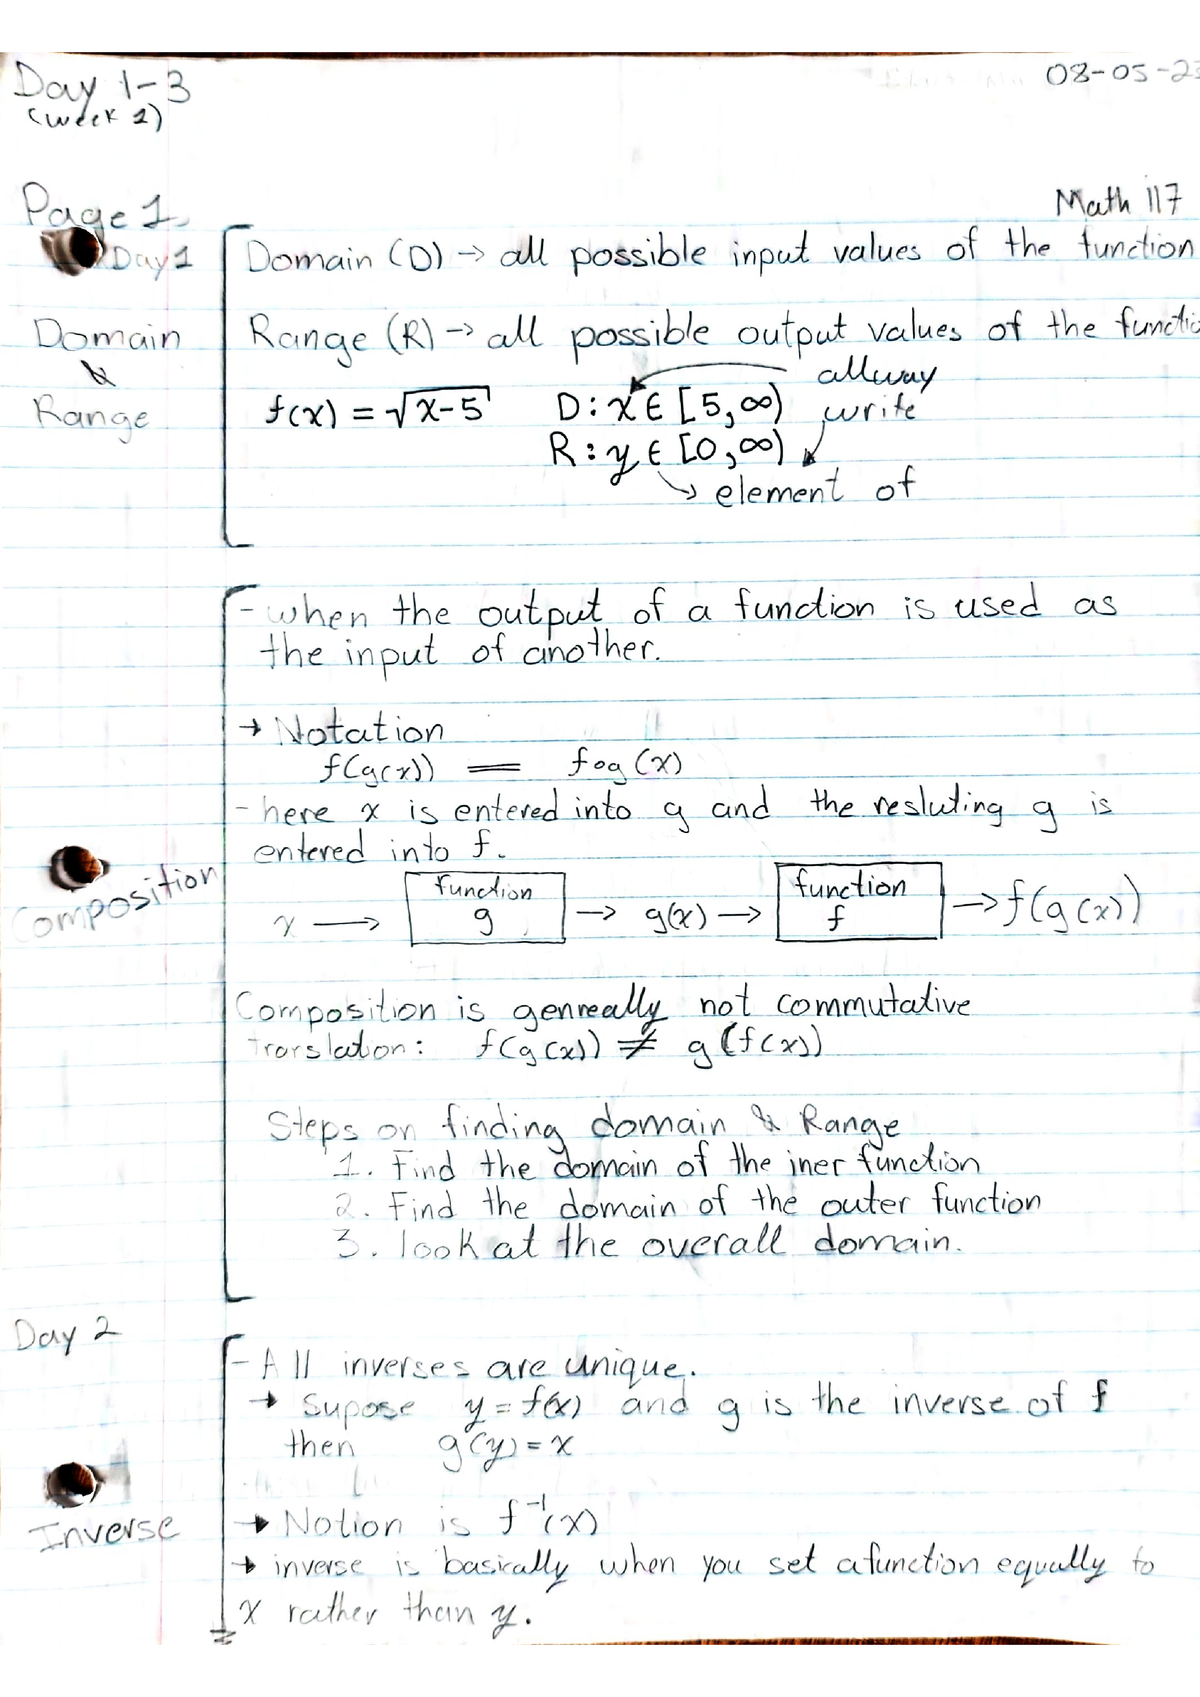 Day 1-3
(week 1)
08-05-23
Page 1
Math 117
Day 1
Domain (D) → all possible input values of the function
Domain
&
Range
Range (R) → all possible output values of the functio
f(x) = √x-5 D: x ∈ [5,∞) allway
R: y ∈ [0,∞) write
↳ element of
- when the output of a function is used as
the input of another.
→ Notation
f(g(x)) = fog(x)
- here x is entered into g and the resluting g is
entered into f.
Composition
x → function g → g(x) → function f → f(g(x))
Composition is genreally not commutative
Translation: f(g(x)) ≠ g(f(x))
Steps on finding domain & Range
1. Find the domain of the iner function
2. Find the domain of the outer function
3. look at the overall domain.
Day 2
- All inverses are unique.
→ Supose y = f(x) and g is the inverse of f
then g(y) = x
Inverse
→ Notion is f⁻¹(x)
→ inverse is basically when you set a function equally to
x rather than y.